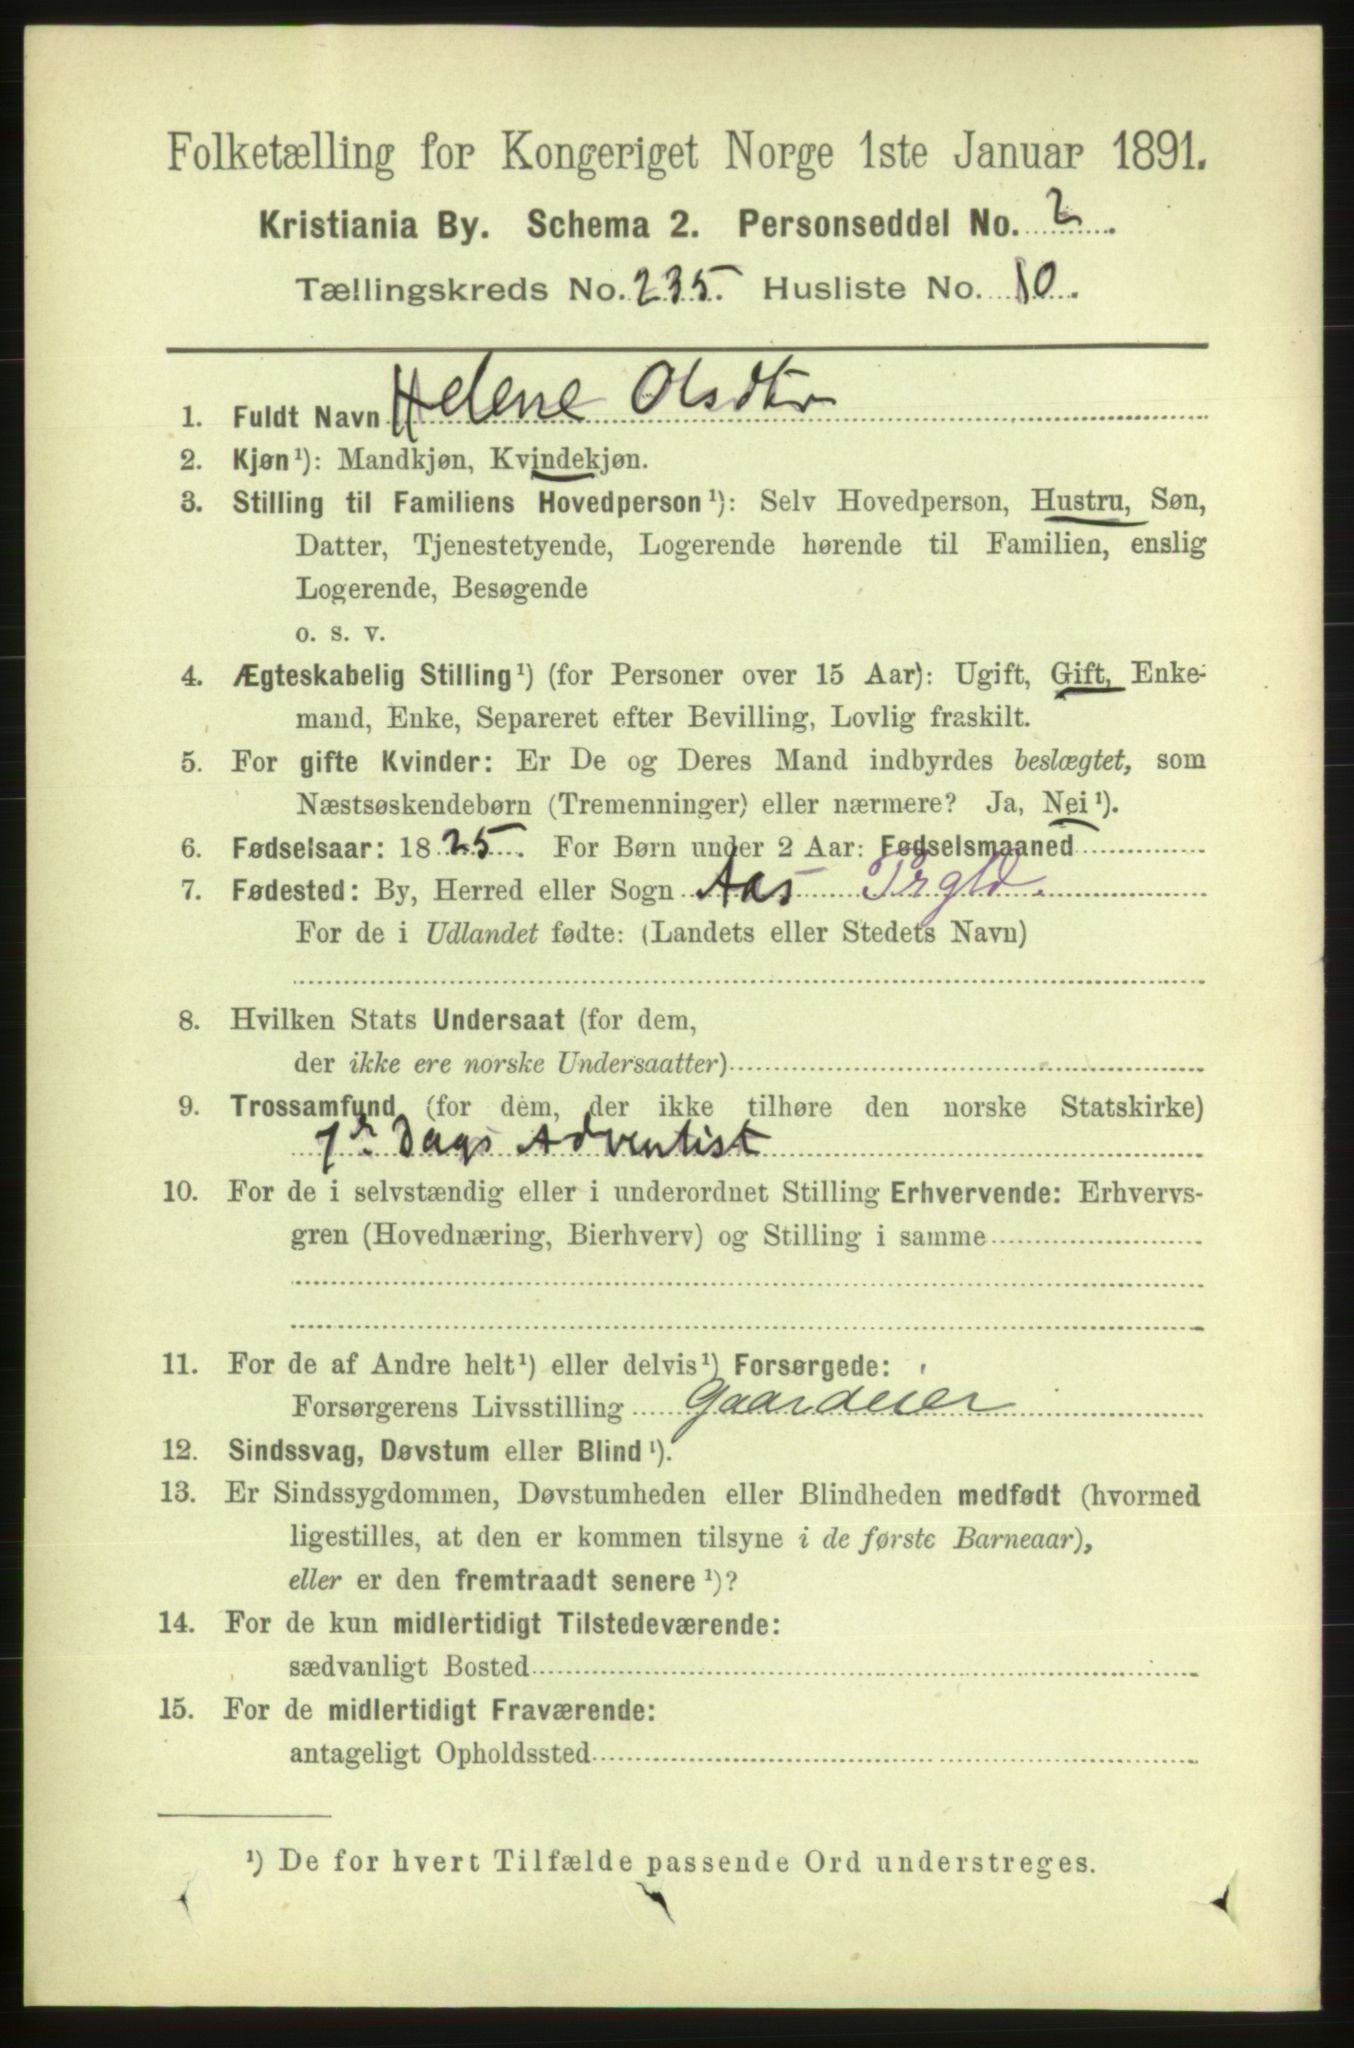 Folketælling for Kongeriget Norge 1ste Januar 1891.
Kristiania By. Schema 2. Personseddel No. 2
Tællingskreds No. 235. Husliste No. 10.
1. Fuldt Navn Helene Olsdtr
2. Kjøn¹): Mandkjøn, Kvindekjøn.
3. Stilling til Familiens Hovedperson¹): Selv Hovedperson, Hustru, Søn,
Datter, Tjenestetyende, Logerende hørende til Familien, enslig
Logerende, Besøgende
o. s. v.
4. Ægteskabelig Stilling¹) (for Personer over 15 Aar): Ugift, Gift, Enke-
mand, Enke, Separeret efter Bevilling, Lovlig fraskilt.
5. For gifte Kvinder: Er De og Deres Mand indbyrdes beslægtet, som
Næstsøskendebørn (Tremenninger) eller nærmere? Ja, Nei¹).
6. Fødselsaar: 1825. For Børn under 2 Aar: Fødselsmaaned
7. Fødested: By, Herred eller Sogn Aas Prgld.
For de i Udlandet fødte: (Landets eller Stedets Navn)
8. Hvilken Stats Undersaat (for dem,
der ikke ere norske Undersaatter)
9. Trossamfund (for dem, der ikke tilhøre den norske Statskirke)
7de Dags Adventist
10. For de i selvstændig eller i underordnet Stilling Erhvervende: Erhvervs-
gren (Hovednæring, Bierhverv) og Stilling i samme
11. For de af Andre helt¹) eller delvis¹) Forsørgede:
Forsørgerens Livsstilling Gaardeier
12. Sindssvag, Døvstum eller Blind¹).
13. Er Sindssygdommen, Døvstumheden eller Blindheden medfødt (hvormed
ligestilles, at den er kommen tilsyne i de første Barneaar),
eller er den fremtraadt senere¹)?
14. For de kun midlertidigt Tilstedeværende:
sædvanligt Bosted
15. For de midlertidigt Fraværende:
antageligt Opholdssted
¹) De for hvert Tilfælde passende Ord understreges.